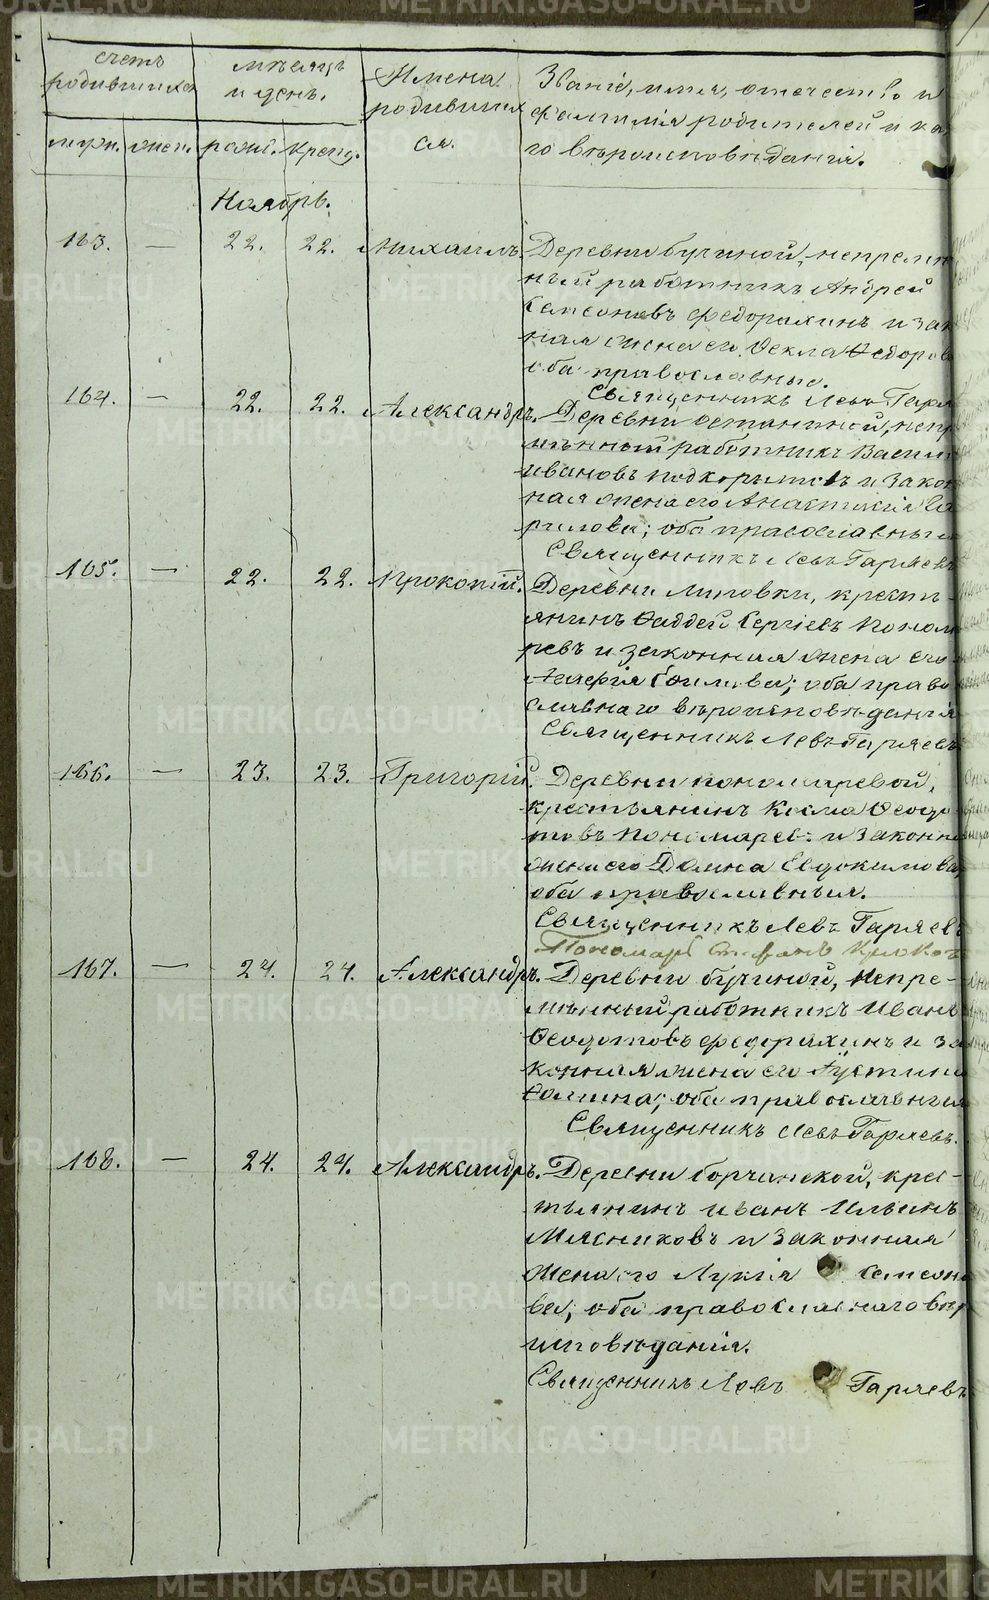 счетъ родившихся
мѣсяцъ и день.
Имена родившихся.
Званіе, имя, отечество и
фамилія родителей и ка
го вѣроисповѣданія.
муж. жен. рожд. крещ.
Ноябрь.
163. — 22. 22. Михаилъ. Деревни бучиной, непремѣн
ный работникъ Андрей
Семеоновъ Федоряхинъ и зак
ная жена его Ѳекла Ѳедоров
оба православные.
Священникъ Левъ Гаря
164. — 22. 22. Александръ. Деревни останиной, непр
мѣнный работникъ Васил
Ивановъ Подкорытовъ и закон
ная жена его Анастасія
рилова; оба православныя
Священникъ Левъ Гаряевъ
165. — 22. 22. Прокопій. Деревни Липовки, кресть
янинъ Ѳаддей Сергіевъ Понома
ревъ и законная жена его
Агафія оба право
славнаго вѣроисповѣданія
Священникъ Левъ Гаряевъ
166. — 23. 23. Григорій. Деревни пономаревой,
крестьянинъ Косма Ѳеодо
товъ Пономарев. и законна
жена его Домна Евдокимова
оба православныя.
Священникъ Левъ Гаряевъ
Пономарь Стефанъ Крюковъ
167. — 24. 24. Александръ. Деревни бучиной, непре-
мѣнный работникъ Иванъ
Ѳеодотовъ Федоряхинъ и за
конная жена его Іустина
Фомина; оба православныя
Священникъ Левъ Гаряевъ.
168. — 24. 24. Александръ. Деревни крес-
тьянинъ Иванъ Ильинъ
Мясниковъ и законная
жена его Лукія Семеоно
ва, оба православнаго вѣр
исповѣданія.
Священникъ Левъ Гаряевъ
METRIKI.GASO-URAL.RU